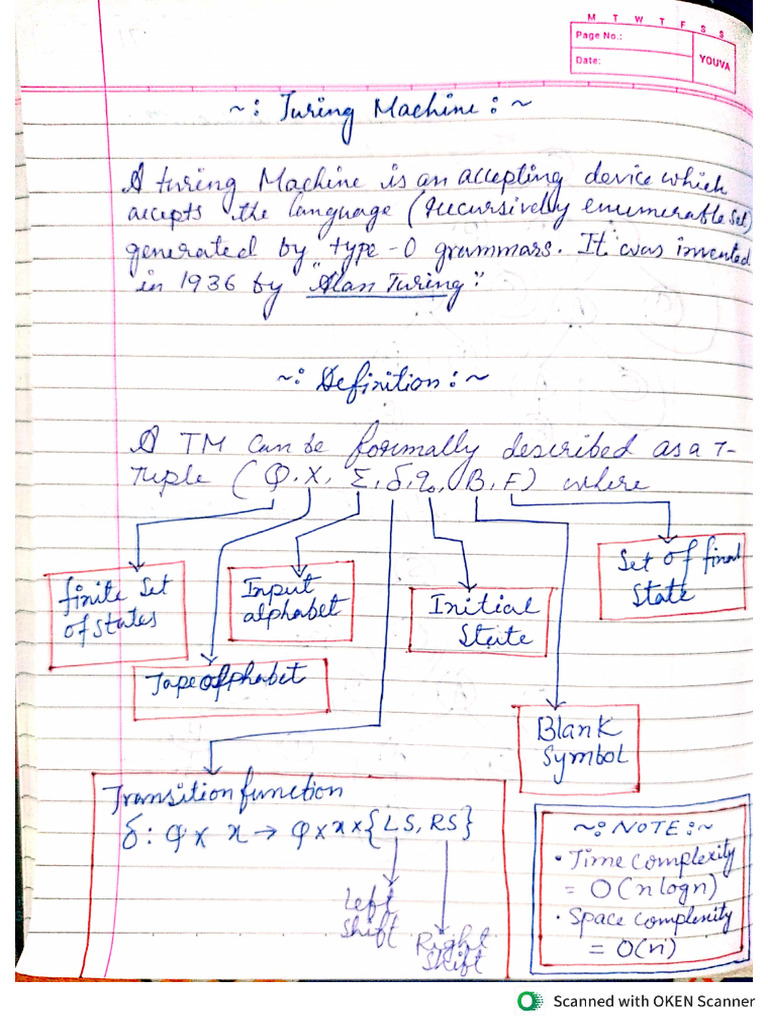 M T W T F S S
Page No.:
Date:
YOUVA
~: Turing Machine : ~
A turing Machine is an accepting device which
accepts the language (recursively enumerable set)
generated by type-0 grammars. It was invented
in 1936 by "Alan Turing".
~: Definition : ~
A TM can be formally described as a 7-
Tuple (Q, X, Σ, δ, q₀, B, F) where
finite set
of states
Input
alphabet
Initial
State
Set of final
State
Tape alphabet
Blank
Symbol
Transition function
δ: Q × x → Q × x × {LS, RS}
Left
Shift
Right
Shift
~: NOTE : ~
• Time complexity
= O(n log n)
• Space complexity
= O(n)
Scanned with OKEN Scanner